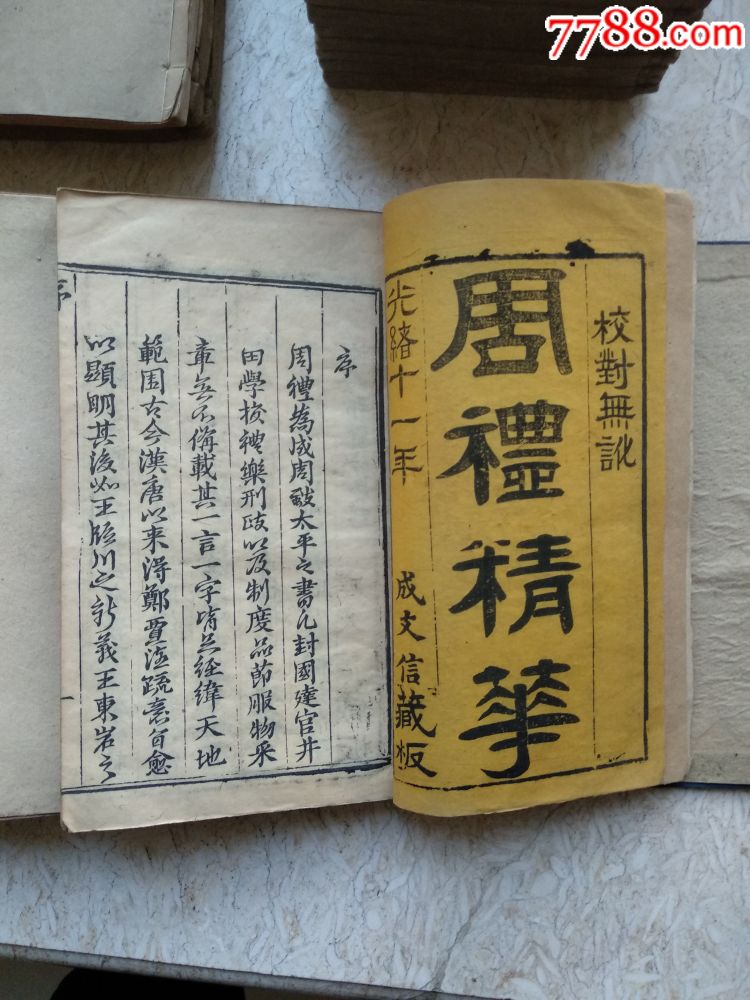 7788.com
校對無訛
周禮精華
光緒十一年
成文信藏板
序
周禮為成周致太平之書凡封國建官井
田學校禮樂刑政以及制度品節服物采
章無不備載其一言一字皆足經緯天地
範围古今漢唐以来得鄭賈注疏意旨愈
以顯明其後如王臨川之新義王東岩之
序